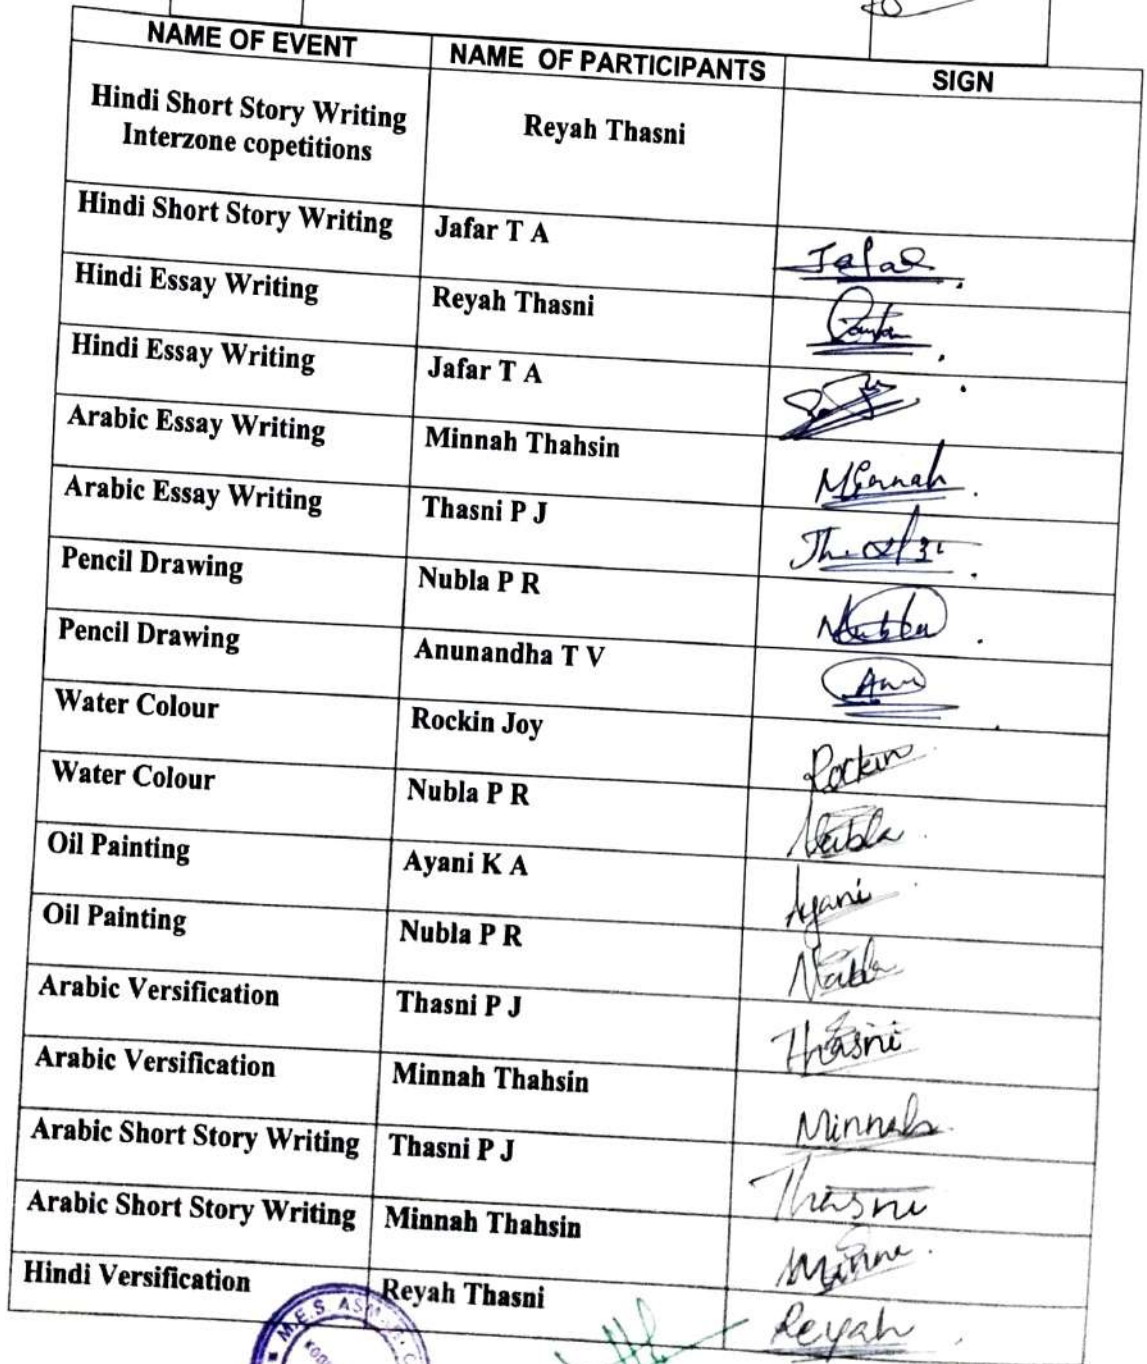 NAME OF EVENT NAME OF PARTICIPANTS SIGN
Hindi Short Story Writing
Interzone copetitions Reyah Thasni
Hindi Short Story Writing Jafar T A Jafar
Hindi Essay Writing Reyah Thasni
Hindi Essay Writing Jafar T A
Arabic Essay Writing Minnah Thahsin Minnah
Arabic Essay Writing Thasni P J
Pencil Drawing Nubla P R Nubla
Pencil Drawing Anunandha T V Anu
Water Colour Rockin Joy Rockin
Water Colour Nubla P R Nubla
Oil Painting Ayani K A Ayani
Oil Painting Nubla P R Nubla
Arabic Versification Thasni P J Thasni
Arabic Versification Minnah Thahsin Minnah
Arabic Short Story Writing Thasni P J Thasni
Arabic Short Story Writing Minnah Thahsin
Hindi Versification Reyah Thasni Reyah
M.E.S. ASM